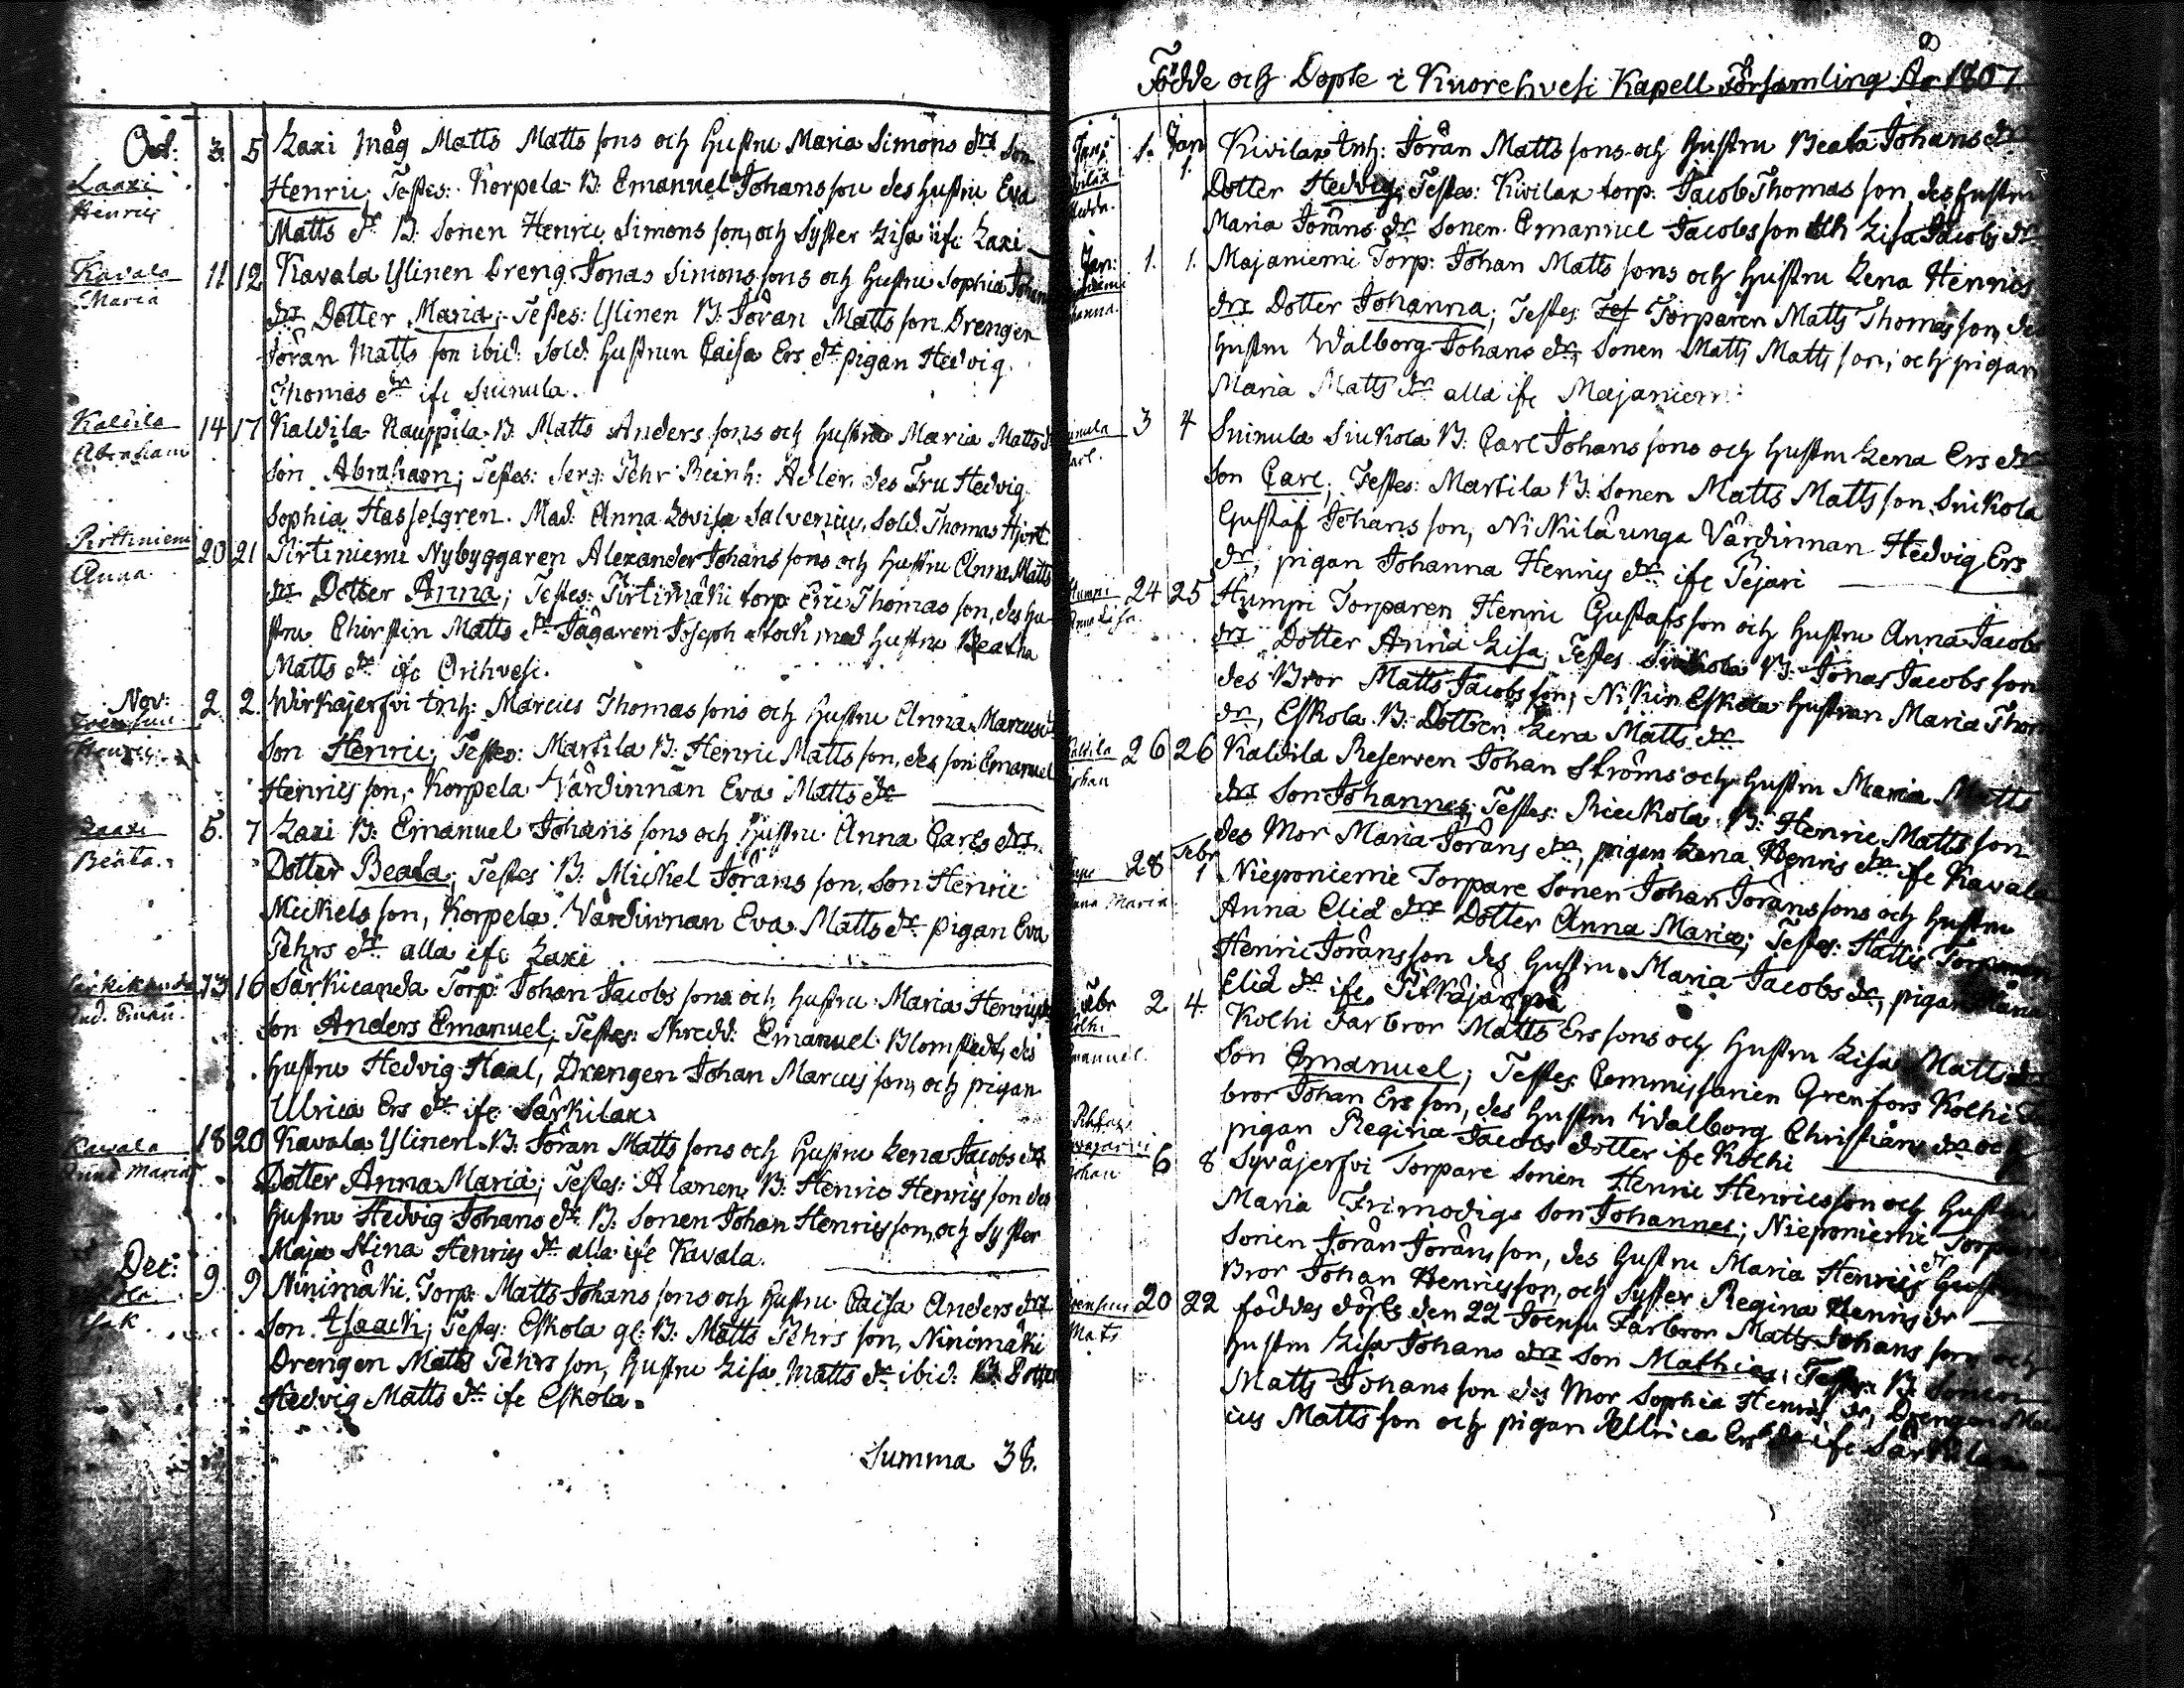 Oct: 3. 5 Laxi måg Matts Matts sons och Hustru Maria Simons drs Son
Laaxi
Henric Henric, Testes: Korpela B: Emanuel Johansson des hustru Eva
Matts dr B: Sonen Henric Simons son, och Syster Lisa ifr. Laxi
Kavala 11 12 Kavala Ylinen Dreng Jonas Simons sons och Hustru Sophia Johans
Maria drs Dotter Maria; Testes: Ylinen B: Jöran Matts son. Drengen
Jöran Matts son ibid: Sold: hustrun Caisa Ers dr pigan Hedvig
Thomas dr ifr Suinula.
Kaldila 14 17 Kaldila Kauppila B. Matts Anders sons och hustru Maria Matts d
Abraham Son Abraham; Testes: Serg: Pehr Reinh: Adler, des Fru Hedvig
Sophia Hasselgren. Mad: Anna Lovisa Salvenius, Sold. Thomas Hjort.
Pirttiniemi 20 21 Pirtiniemi Nybyggaren Alexander Johans sons och hustru Anna Matts
Anna drs Dotter Anna; Testes: Pirtimäki torp: Eric Thomas son, des hu-
stru Chirstin Matts dr Jägaren Joseph Stock med hustru Beatha
Matts dr ifr Orihvesi.
Nov: 2. 2. Wirkajerfvi Inh: Marcus Thomas sons och Hustru Anna Marcus d
Henric Son Henric; Testes: Martila B: Henric Matts son, des son Emanuel
Henrics son, Korpela Värdinnan Eva Matts dr
Laaxi 5. 7 Laxi B: Emanuel Johans sons och Hustru Anna Carls drs
Beata. Dotter Beata; Testes B: Mickel Jörans son, Son Henric
Mickels son, Korpela Värdinnan Eva Matts dr pigan Eva
Pehrs dr alla ifr Laxi
13 16 Särkicanda Torp: Johan Jacobs sons och hustru Maria Henrics
And. Eman. Son Anders Emanuel; Testes: Skredd: Emanuel Blomstedt, des
hustru Hedvig Haal, Drengen Johan Marcus son, och pigan
Ulrica Ers dr ifr Särkilax.
Kavala 18 20 Kavala Ylinen B. Jöran Matts sons och hustru Lena Jacobs dr
Anna Maria Dotter Anna Maria; Testes: Alanen B: Henric Henrics son des
hustru Hedvig Johans dr B: Sonen Johan Henrics son, och Syster
Maja Stina Henrics dr alla ifr Kavala.
Dec: 9. 9 Ninimäki Torp: Matts Johans sons och hustru Caisa Anders drs
Son Isaack; Testes: Eskola gl: B: Matts Pehrs son, Ninimäki
Drengen Matts Pehrs son, hustru Lisa Matts dr ibid: B: Dotter
Hedvig Matts dr ifr Eskola.
Summa 38.
Födde och Döpte i Kuorehvesi Kapell Församling År 1807.
Jan: 1. Jan 1. Kivilax Inh: Jöran Matts sons och hustru Beata Johans dr
Dotter Hedvig; Testes: Kivilax torp: Jacob Thomas son, des hustru
Maria Jörans dr Sonen Emanuel Jacobs son och Lisa Jacobs dr
Jan: 1. 1. Majaniemi Torp: Johan Matts sons och hustru Lena Henrics
drs Dotter Johanna; Testes: Torparen Matts Thomas son, des
hustru Walborg Johans dr, Sonen Matts Matts son, och pigan
Maria Matts dr alla ifr Majaniemi
3 4 Suinula Siukola B: Carl Johans sons och hustru Lena Ers dr
Carl. Son Carl; Testes: Martila B: Sonen Matts Matts son, Siukola
Gustaf Johans son, Nickilä unga Värdinnan Hedvig Ers
dr, pigan Johanna Henrics dr ifr Pejari
Humpi 24 25 Humpi Torparen Henric Gustafs son och hustru Anna Jacobs
Anna Lisa drs Dotter Anna Lisa; Testes Siukola B: Jonas Jacobs son
des Bror Matts Jacobs son, Eskola hustrun Maria Thom
dr, Eskola B: Dottren Lena Matts dr
Kaldila 26 26 Kaldila Reserven Johan Ströms och hustru Maria Matts
Johan drs Son Johannes; Testes: B: Henric Matts son
des Mor Maria Jörans dr, pigan Lena Henrics dr ifr Kavala
28 Febr 1 Nieponiemi Torpare Sonen Johan Jörans sons och hustru
Anna Maria Anna Elid drs Dotter Anna Maria; Testes: Torparen
Henric Jörans son des hustru Maria Jacobs dr, pigan Maria
Elid dr ifr
Febr 2 4. Kolhi Farbror Matts Ers sons och hustru Lisa Matts dr
Emanuel. Son Emanuel; Testes: Commissarien Grenfors Kolhi
bror Johan Ers son, des hustru Walborg Christians dr och
pigan Regina Jacobs dotter ifr Kolhi
Johan 6 8 Syväjerfvi Torpare Sonen Henric Henrics son och hustru
Maria Frimodigs Son Johannes; Nieponiemi Torpare
Sonen Jöran Jörans son, des hustru Maria Henrics dr
Bror Johan Henrics son, och Syster Regina Henrics dr
20 22 föddes döpts den 22 Joensu Farbror Matts Johans sons och
Mats hustru Lisa Johans drs Son Mathias; Testes: B: Sonen
Matts Johans son des Mor Sophia Henrics dr, Drengen Mar
cus Matts son och pigan Ullrica Ers dr ifr Särkilax